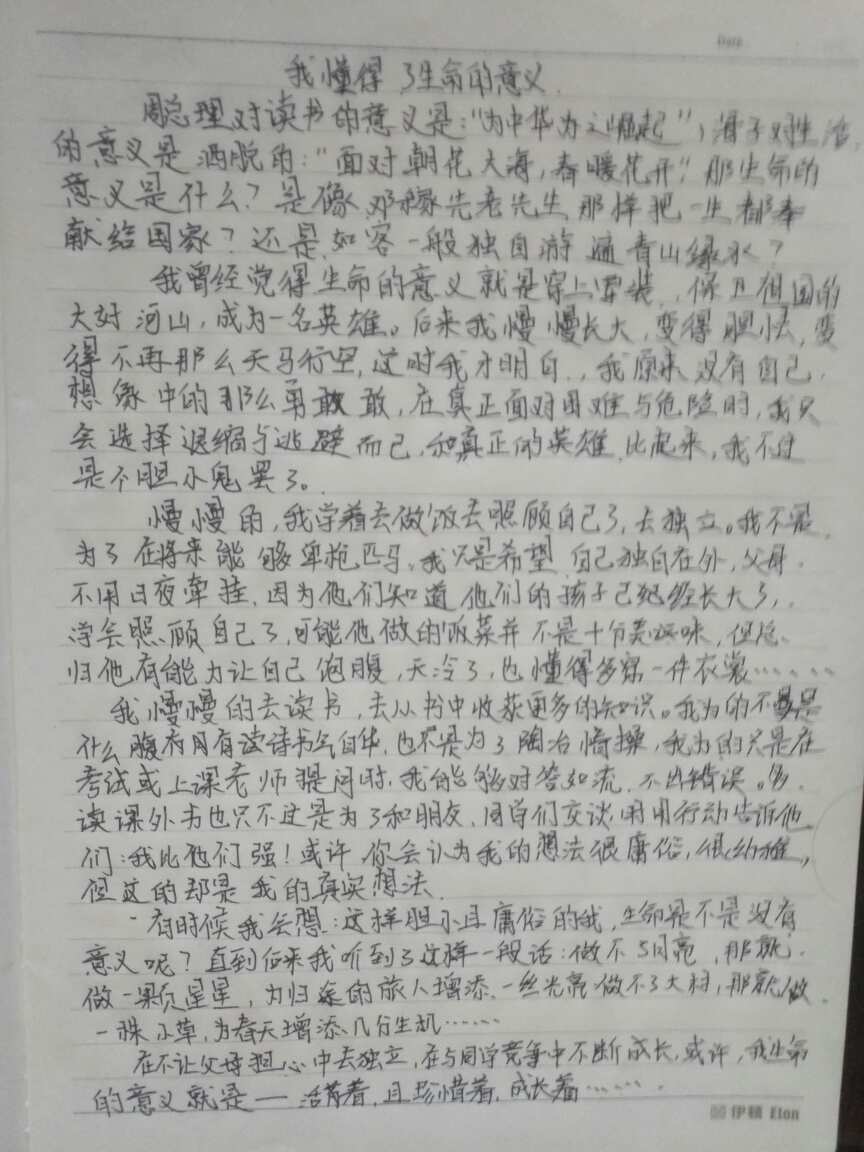 Date
我懂得了生命的意义
周总理对读书的意义是：“为中华为之崛起”，海子对生活
的意义是洒脱的：“面对朝花大海，春暖花开”。那生命的
意义是什么？是像邓稼先老先生那样把一生都奉
献给国家？还是如客一般独自游遍青山绿水？
我曾经觉得生命的意义就是穿上军装，保卫祖国的
大好河山，成为一名英雄。后来我慢慢长大，变得胆怯，变
得不再那么天马行空，这时我才明白，我原来没有自己
想象中的那么勇敢敢，在真正面对困难与危险时，我只
会选择退缩与逃避而已，和真正的英雄比起来，我不过
是个胆小鬼罢了。
慢慢的，我学着去做饭去照顾自己了，去独立。我不是
为了在将来能够单枪匹马，我只是希望自己独自在外，父母
不用日夜牵挂，因为他们知道他们的孩子已经长大了，
学会照顾自己了，可能他做的饭菜并不是十分美味，但总
归他有能力让自己饱腹，天冷了，也懂得多穿一件衣裳……
我慢慢的去读书，去从书中收获更多的知识。我为的不是
什么腹有有读诗书气自华，也不是为了陶冶情操，我为的只是在
考试或上课老师提问时，我能够对答如流，不出错误。多
读课外书也只不过是为了和朋友、同学们交谈时用行动告诉他
们：我比他们强！或许你会认为我的想法很庸俗，很幼稚，
但这的却是我的真实想法
有时候我会想：这样胆小且庸俗的我，生命是不是没有
意义呢？直到后来我听到了这样一段话：做不了月亮，那就
做一颗星星，为归途的旅人增添一丝光亮做不了大树，那就做
一株小草，为春天增添几分生机……
在不让父母担心中去独立，在与同学竞争中不断成长，或许，我生命
的意义就是——活着，且珍惜着，成长着……
伊顿 Eton